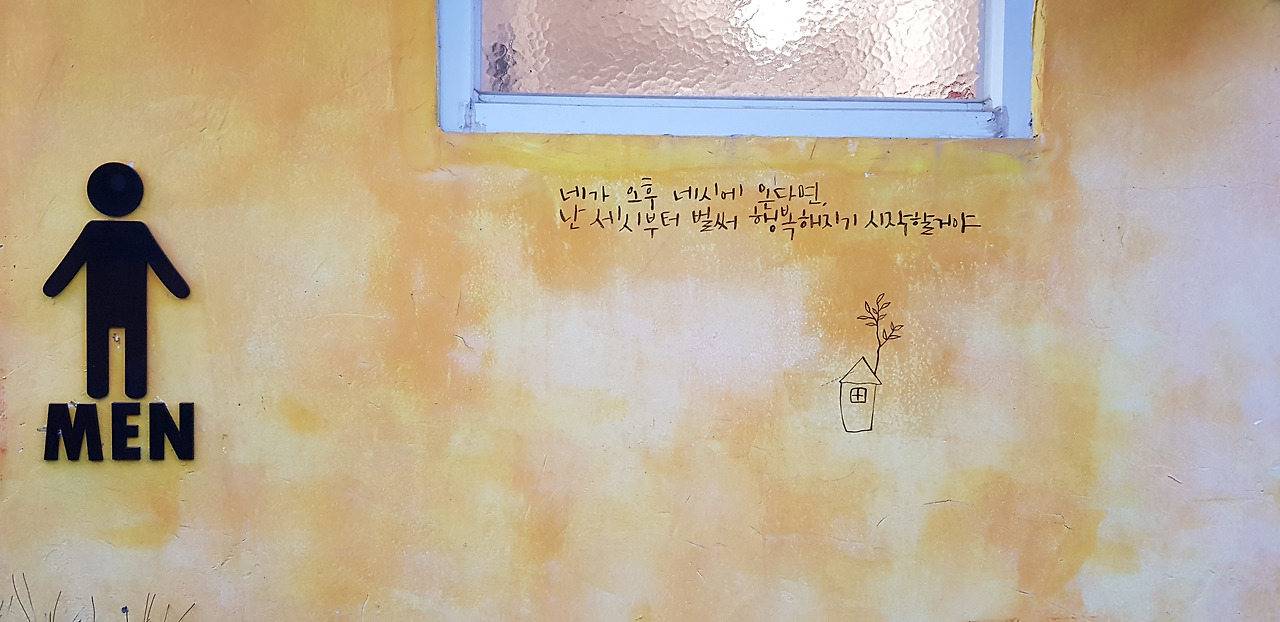 네가 오후 네시에 온다면,
난 세시부터 벌써 행복해지기 시작할거야
MEN